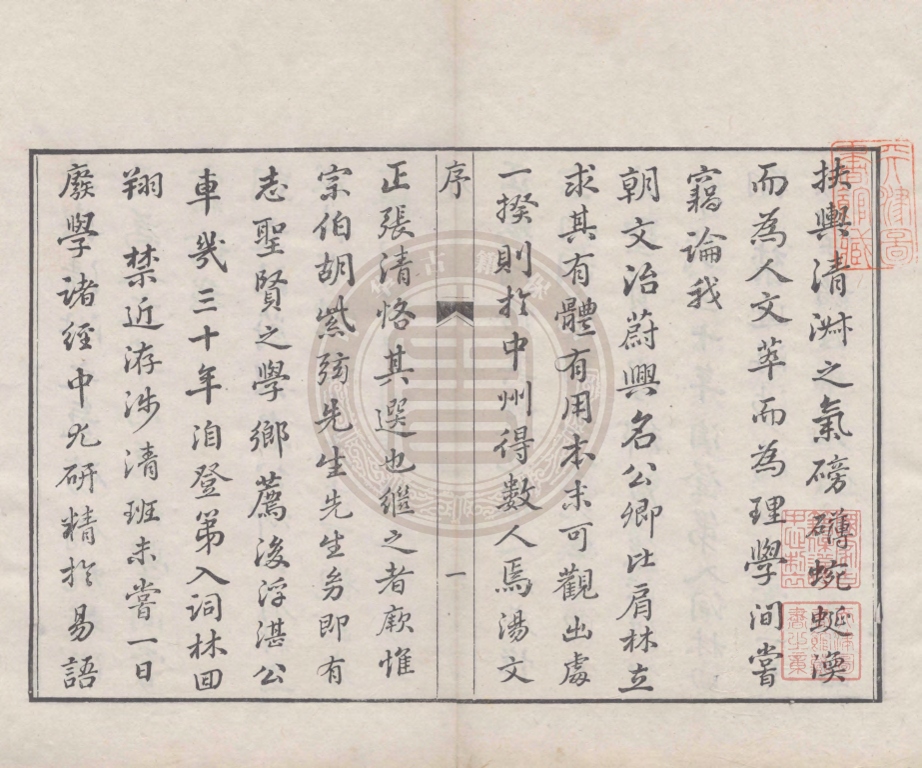 扶輿清淋之氣磅礴蜿蜒渙
而為人文萃而為理學間嘗
竊論我
朝文治蔚興名公卿比肩林立
求其有體有用本末可觀出處
一揆則於中州得數人焉湯文
序
一
正張清恪其選也繼之者厥惟
宗伯胡紫弦先生先生幼即有
志聖賢之學鄉薦後浮湛公
車幾三十年洎登第入詞林回
翔 禁近洊涉清班未嘗一日
廢學諸經中尤研精於易語
天津圖
書館藏